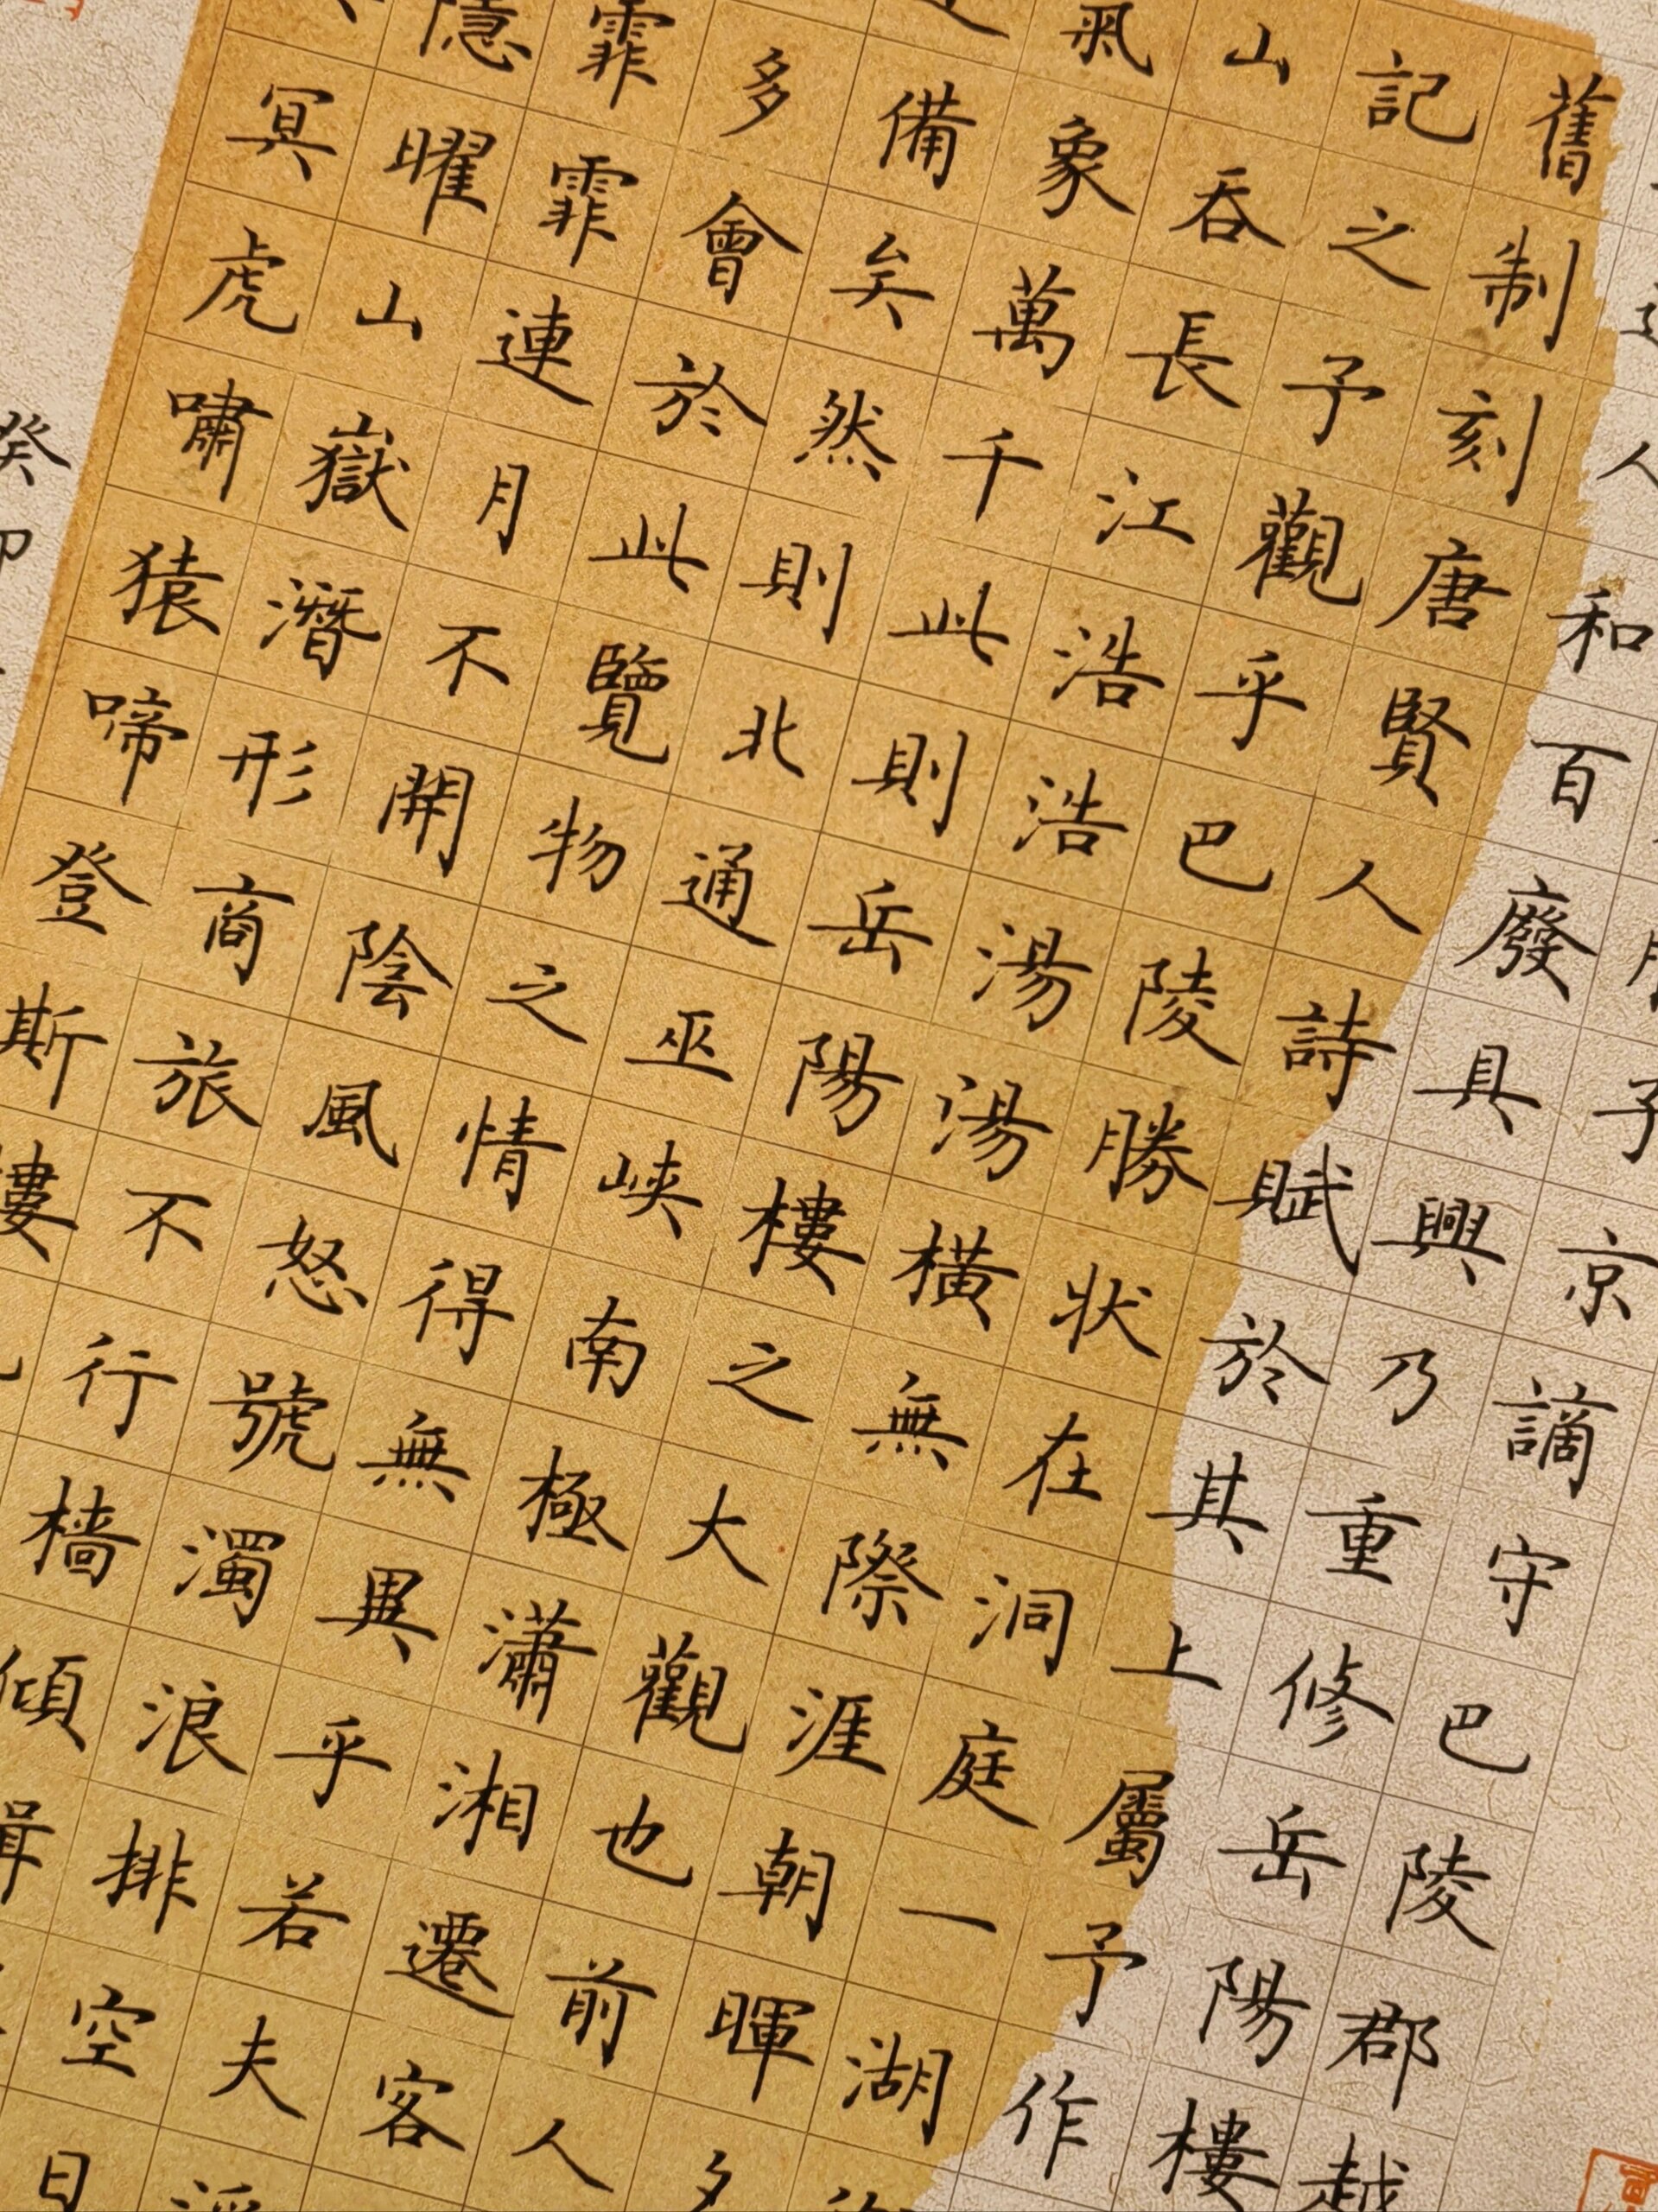 子京謫守巴陵郡越
人和百廢具興乃重修岳陽樓
舊制刻唐賢人詩賦於其上屬予作
記之予觀乎巴陵勝状在洞庭一湖
山吞長江浩浩湯湯橫無際涯朝暉夕
氣象萬千此則岳陽樓之大觀也前人
備矣然則北通巫峡南極瀟湘遷客
多會於此覽物之情得無異乎若夫淫
霏霏連月不開陰風怒號濁浪排空日
隱曜山嶽潛形商旅不行檣傾楫
冥虎嘯猿啼登斯樓
癸卯